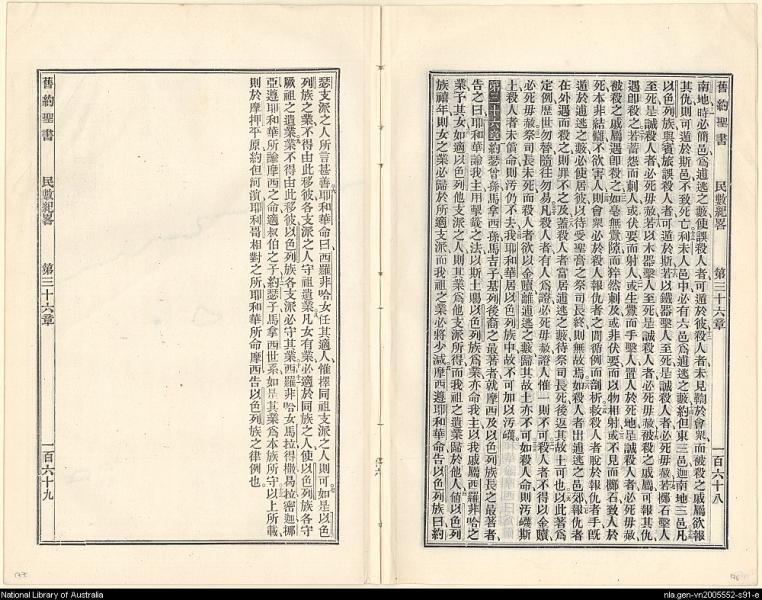 舊約聖書 民數紀畧 第三十六章 一百六十八
南地時必簡邑爲逋逃之藪使誤殺人者可遁於彼殺人者未見鞫於會衆而被殺之戚屬欲報
其仇則可遁於斯邑不致死亡利未人邑中必有六邑爲逋逃之藪約但東三邑迦南地三邑凡
以色列族與賓旅誤殺人者可遁於斯若以鐵器擊人至死是誠殺人者必死毋赦若擲石擊人
至死是誠殺人者必死毋赦若以木器擊人至死是誠殺人者必死毋赦被殺之戚屬可報其仇
遇即殺之若蓄怨而刺人或伏要而射人或生釁而手擊人置人於死地是誠殺人者必死毋赦
被殺之戚屬遇即殺之如毫無釁隙而猝然刺及或非伏要而以物相射或不見而擲石致人於
死本非結讎不欲害人則會衆必於殺人報仇者之間循例而剖析救殺人者脫於報仇者手旣
遁於逋逃之藪必使居彼以待受聖膏之祭司長終則無故焉如殺人者出逋逃之邑郊報仇者
在外遇而殺之則罪不之及蓋殺人者當居逋逃之藪待祭司長死後返其故土可也以此著爲
定例歷世勿替隨往勿易凡殺人者有人爲證必死毋赦證人惟一則不可殺人者不得以金贖
必死毋赦祭司長未死而殺人者欲以金贖離逋逃之藪歸其故土亦不可如殺人命則汚衊斯
土殺人者未償命則汚仍不去我耶和華居以色列族中故不可加以汚衊
第三十六章 約瑟曾孫馬拿西孫馬吉子基列後裔之最著者就摩西及以色列族長之最著者
告之曰耶和華諭我主用掣籤之法以斯土賜以色列族爲業亦命我主以我戚屬西羅非哈之
業予其女如適以色列他支派之人則其業爲他支派所得而我祖之遺業歸於他人值以色列
族禧年則女之業必歸於所適支派而我祖之業必將少減摩西遵耶和華命告以色列族曰約
瑟支派之人所言甚善耶和華命曰西羅非哈女任其適人惟擇同祖支派之人則可如是以色
列族之業不得由此移彼各支派之人守祖遺業凡女有業必適於同族之人使以色列族各守
厥祖之遺業業不得由此移彼以色列族各支派必守其業西羅非哈女馬拉得撒易拉密迦挪
亞遵耶和華所諭摩西之命適叔伯之子約瑟子馬拿西世系如是其業爲本族所守以上所載
則於摩押平原約但河濱耶利哥相對之所耶和華所命摩西告以色列族之律例也
舊約聖書 民數紀畧 第三十六章 一百六十九
National Library of Australia
nla.gen-vn2005552-s91-e